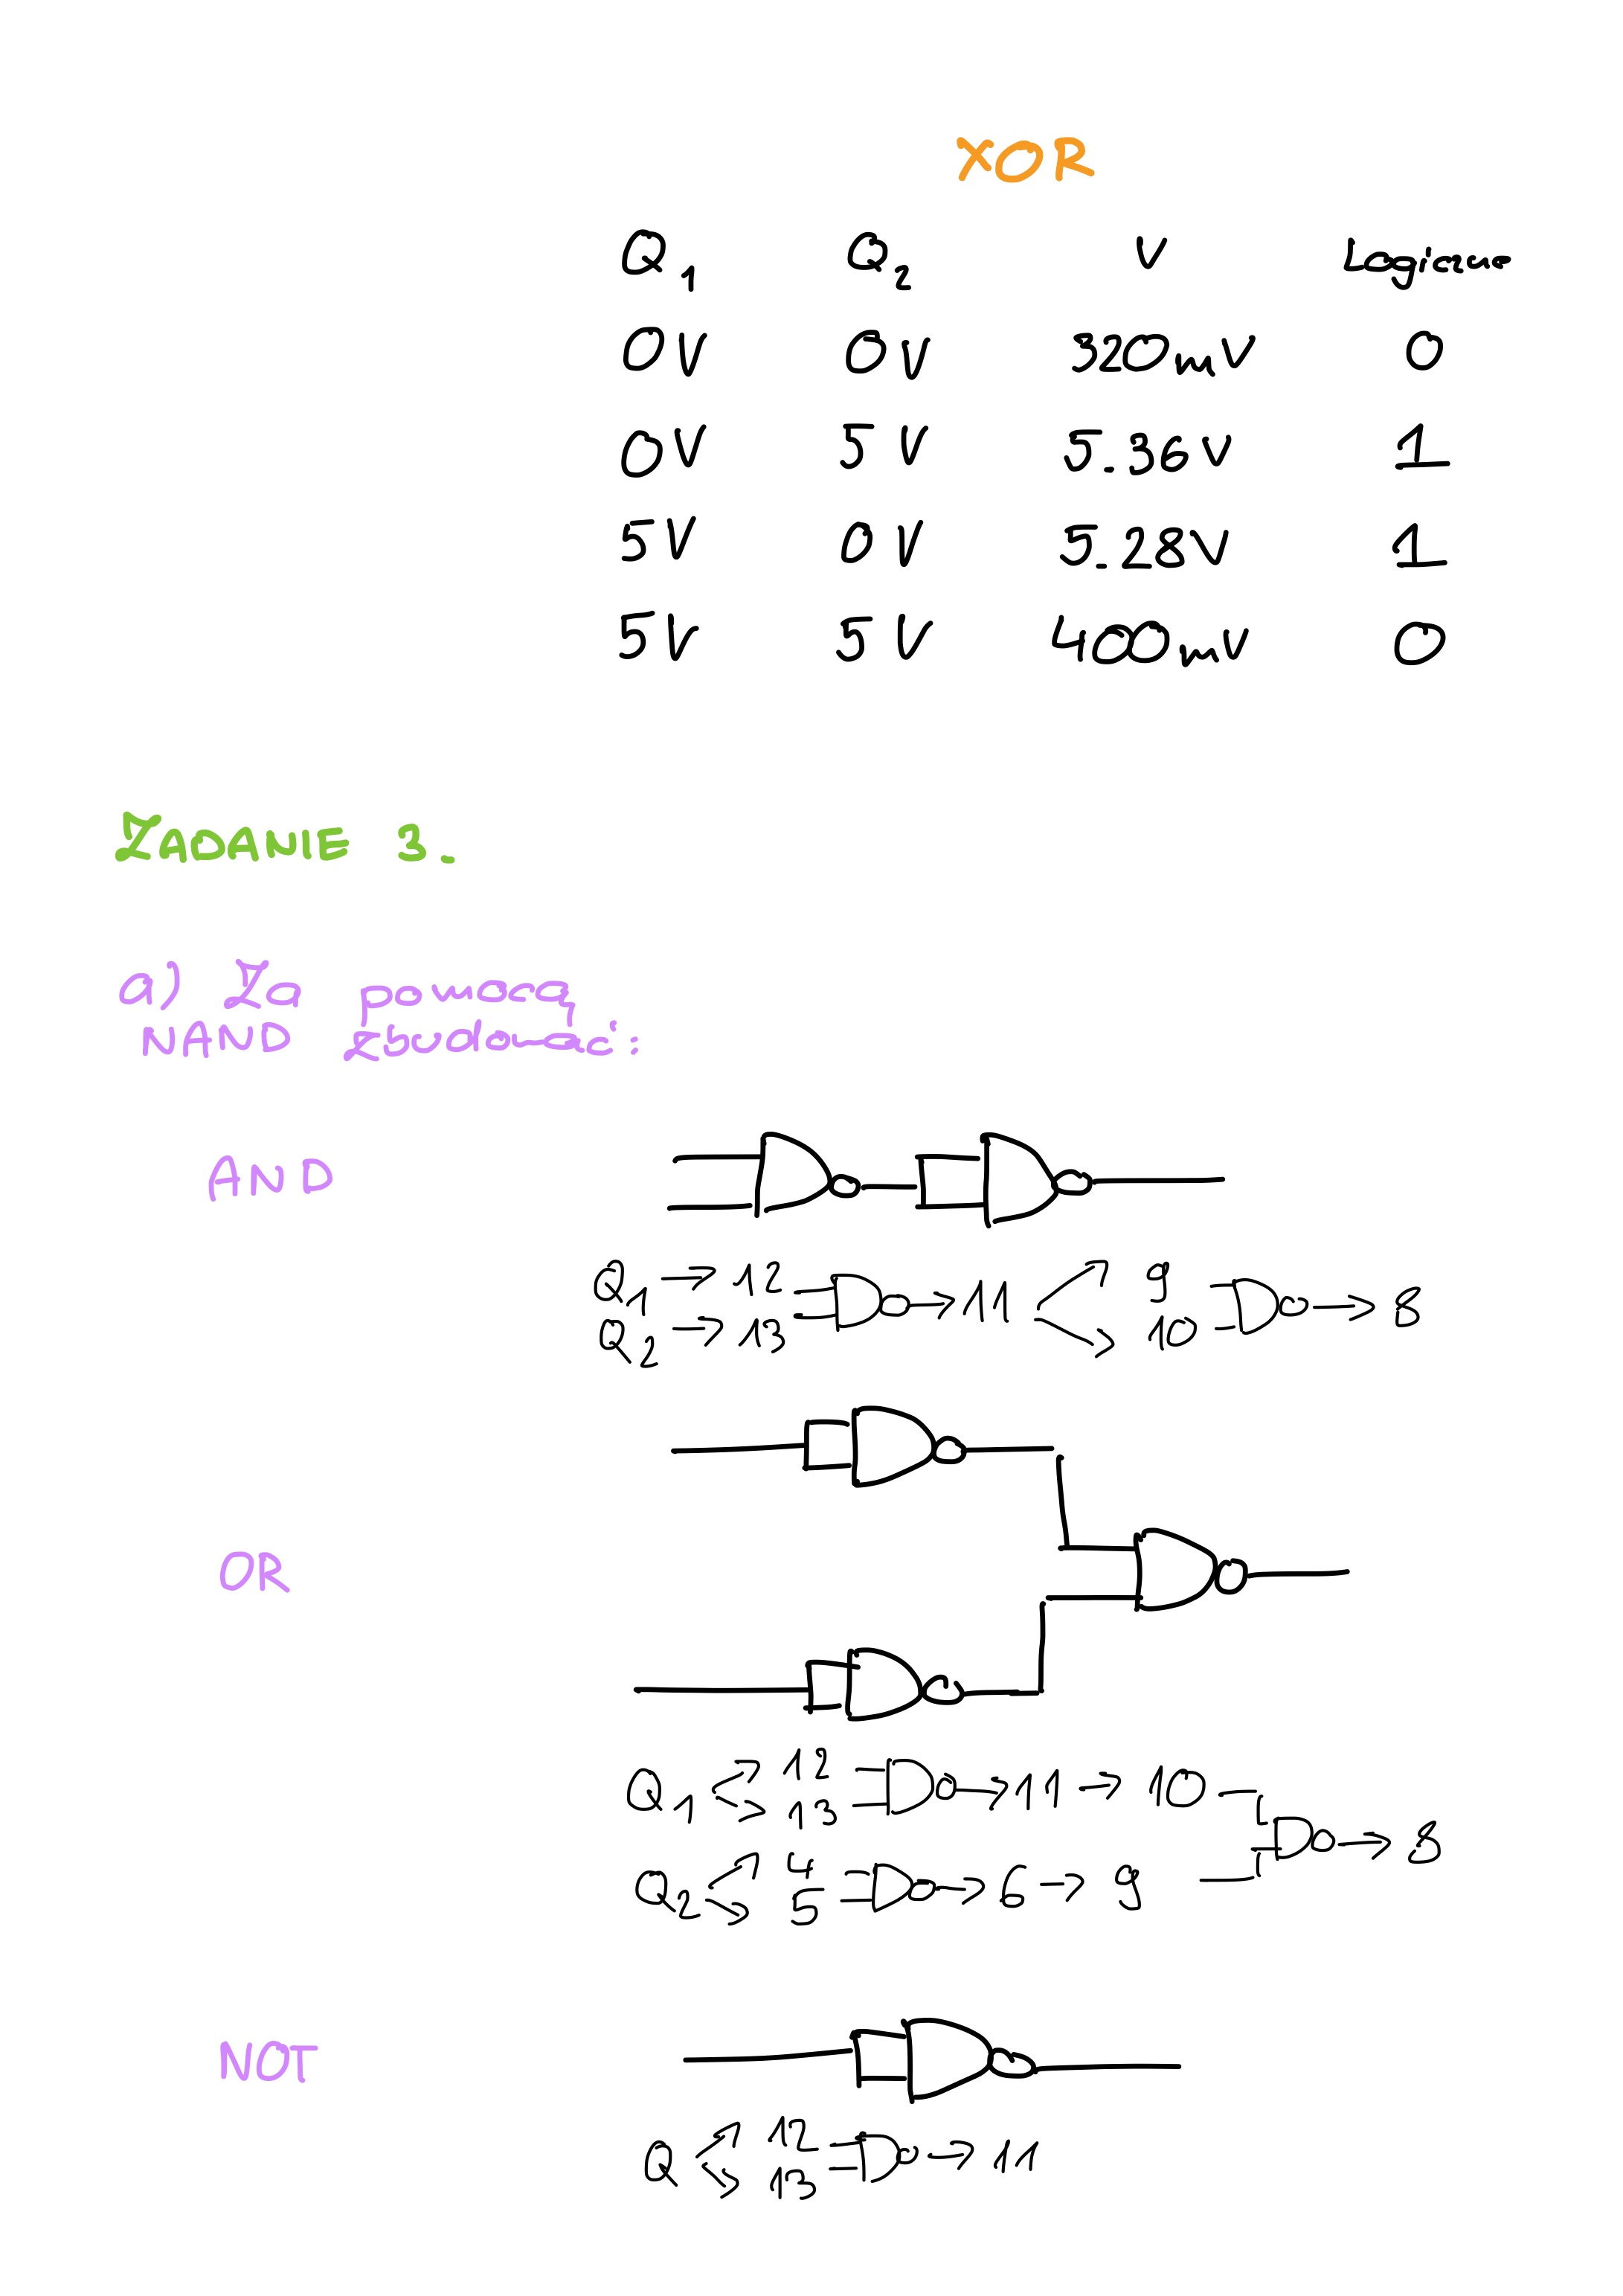 XOR
Q1 Q2 V Logiczne
0V 0V 320mV 0
0V 5V 5.36V 1
5V 0V 5.28V 1
5V 5V 400mV 0
ZADANIE 3.
a) Za pomocą
NAND zbudować:
AND
Q1 → 12 → 11 → 9 → 8
Q2 → 13 → 10
OR
Q1 → 12 → 11 → 10
13 → 8
Q2 → 4 → 6 → 9
5
NOT
Q → 12 → 11
13